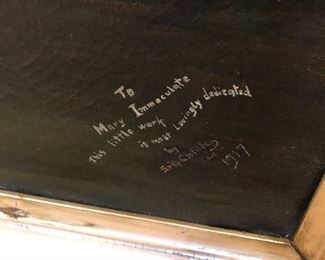 To
Mary Immaculate
This little work
is most Lovingly dedicated
by
1917